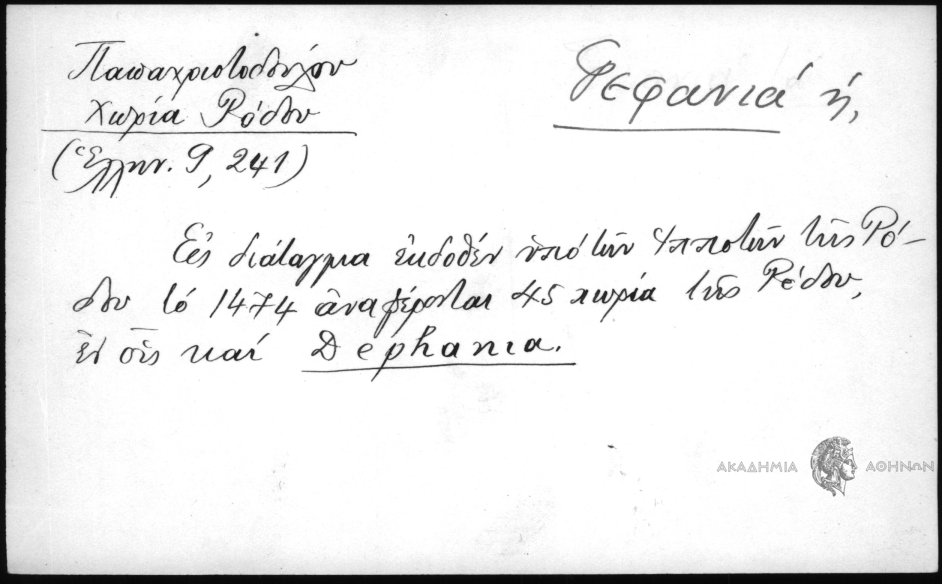 Παπαχριστοδούλου
Χωρία Ρόδου
(Ἑλλην. 9, 241)
Ψεφανιά ἡ,
Εἰς διάταγμα ἐκδοθέν ὑπό τῶν Ἱπποτῶν τῆς Ρό-
δου τό 1474 ἀναφέρονται 45 χωρία τῆς Ρόδου,
ἐν οἷς καί Dephania.
ΑΚΑΔΗΜΙΑ ΑΘΗΝΩΝ